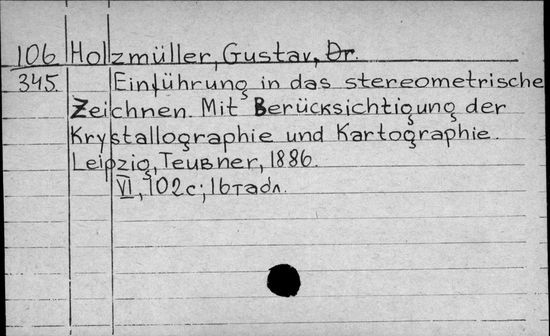 106 Holzmüller, Gustav, Dr.
345. Einführung in das stereometrische
Zeichnen. Mit Berücksichtigung der
Krystallographie und Kartographie.
Leipzig, Teubner, 1886.
VI, 102 с; 16 табл.